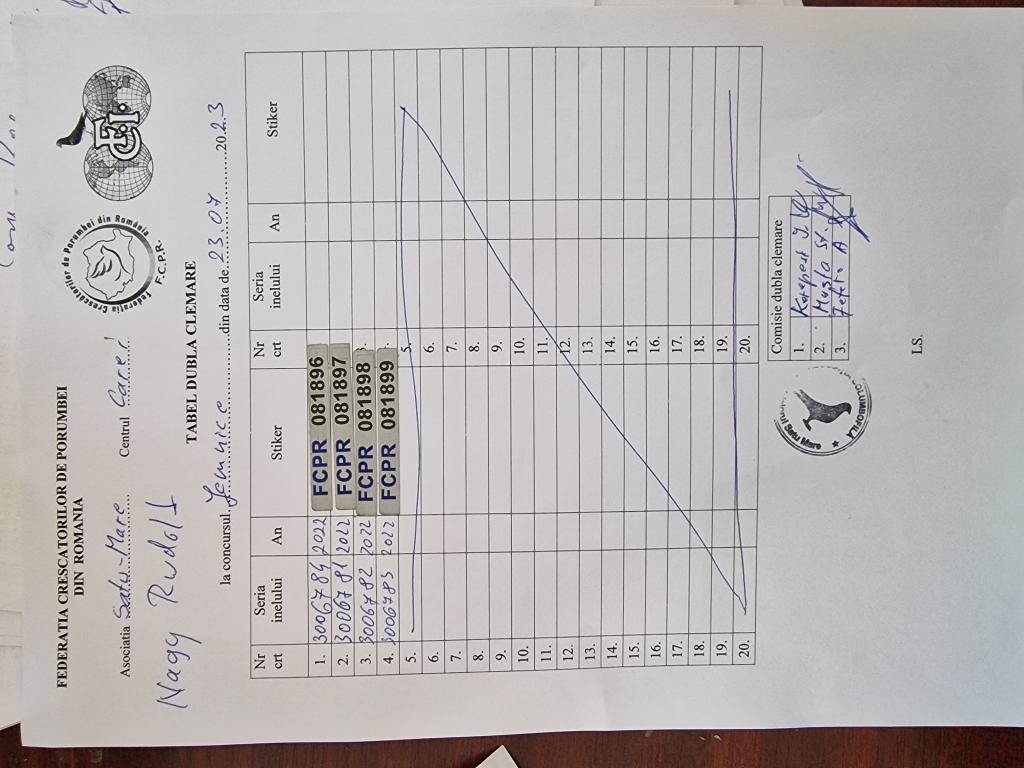 FEDERATIA CRESCATORILOR DE PORUMBEI
DIN ROMANIA
Federația Crescătorilor de Porumbei din România
F.C.P.R.
FCI
Asociatia Satu-Mare Centrul Carei
Nagy Rudolf
TABEL DUBLA CLEMARE
la concursul Jemnice din data de 23.07 2023
Nr crt Seria inelului An Stiker Nr crt Seria inelului An Stiker
1. 3006784 2022 FCPR 081896
2. 3006781 2022 FCPR 081897
3. 3006782 2022 FCPR 081898
4. 3006783 2022 FCPR 081899
5. 5.
6. 6.
7. 7.
8. 8.
9. 9.
10. 10.
11. 11.
12. 12.
13. 13.
14. 14.
15. 15.
16. 16.
17. 17.
18. 18.
19. 19.
20. 20.
Comisie dubla clemare
1.
2.
3.
Satu Mare
COLUMBOFILA
LS.